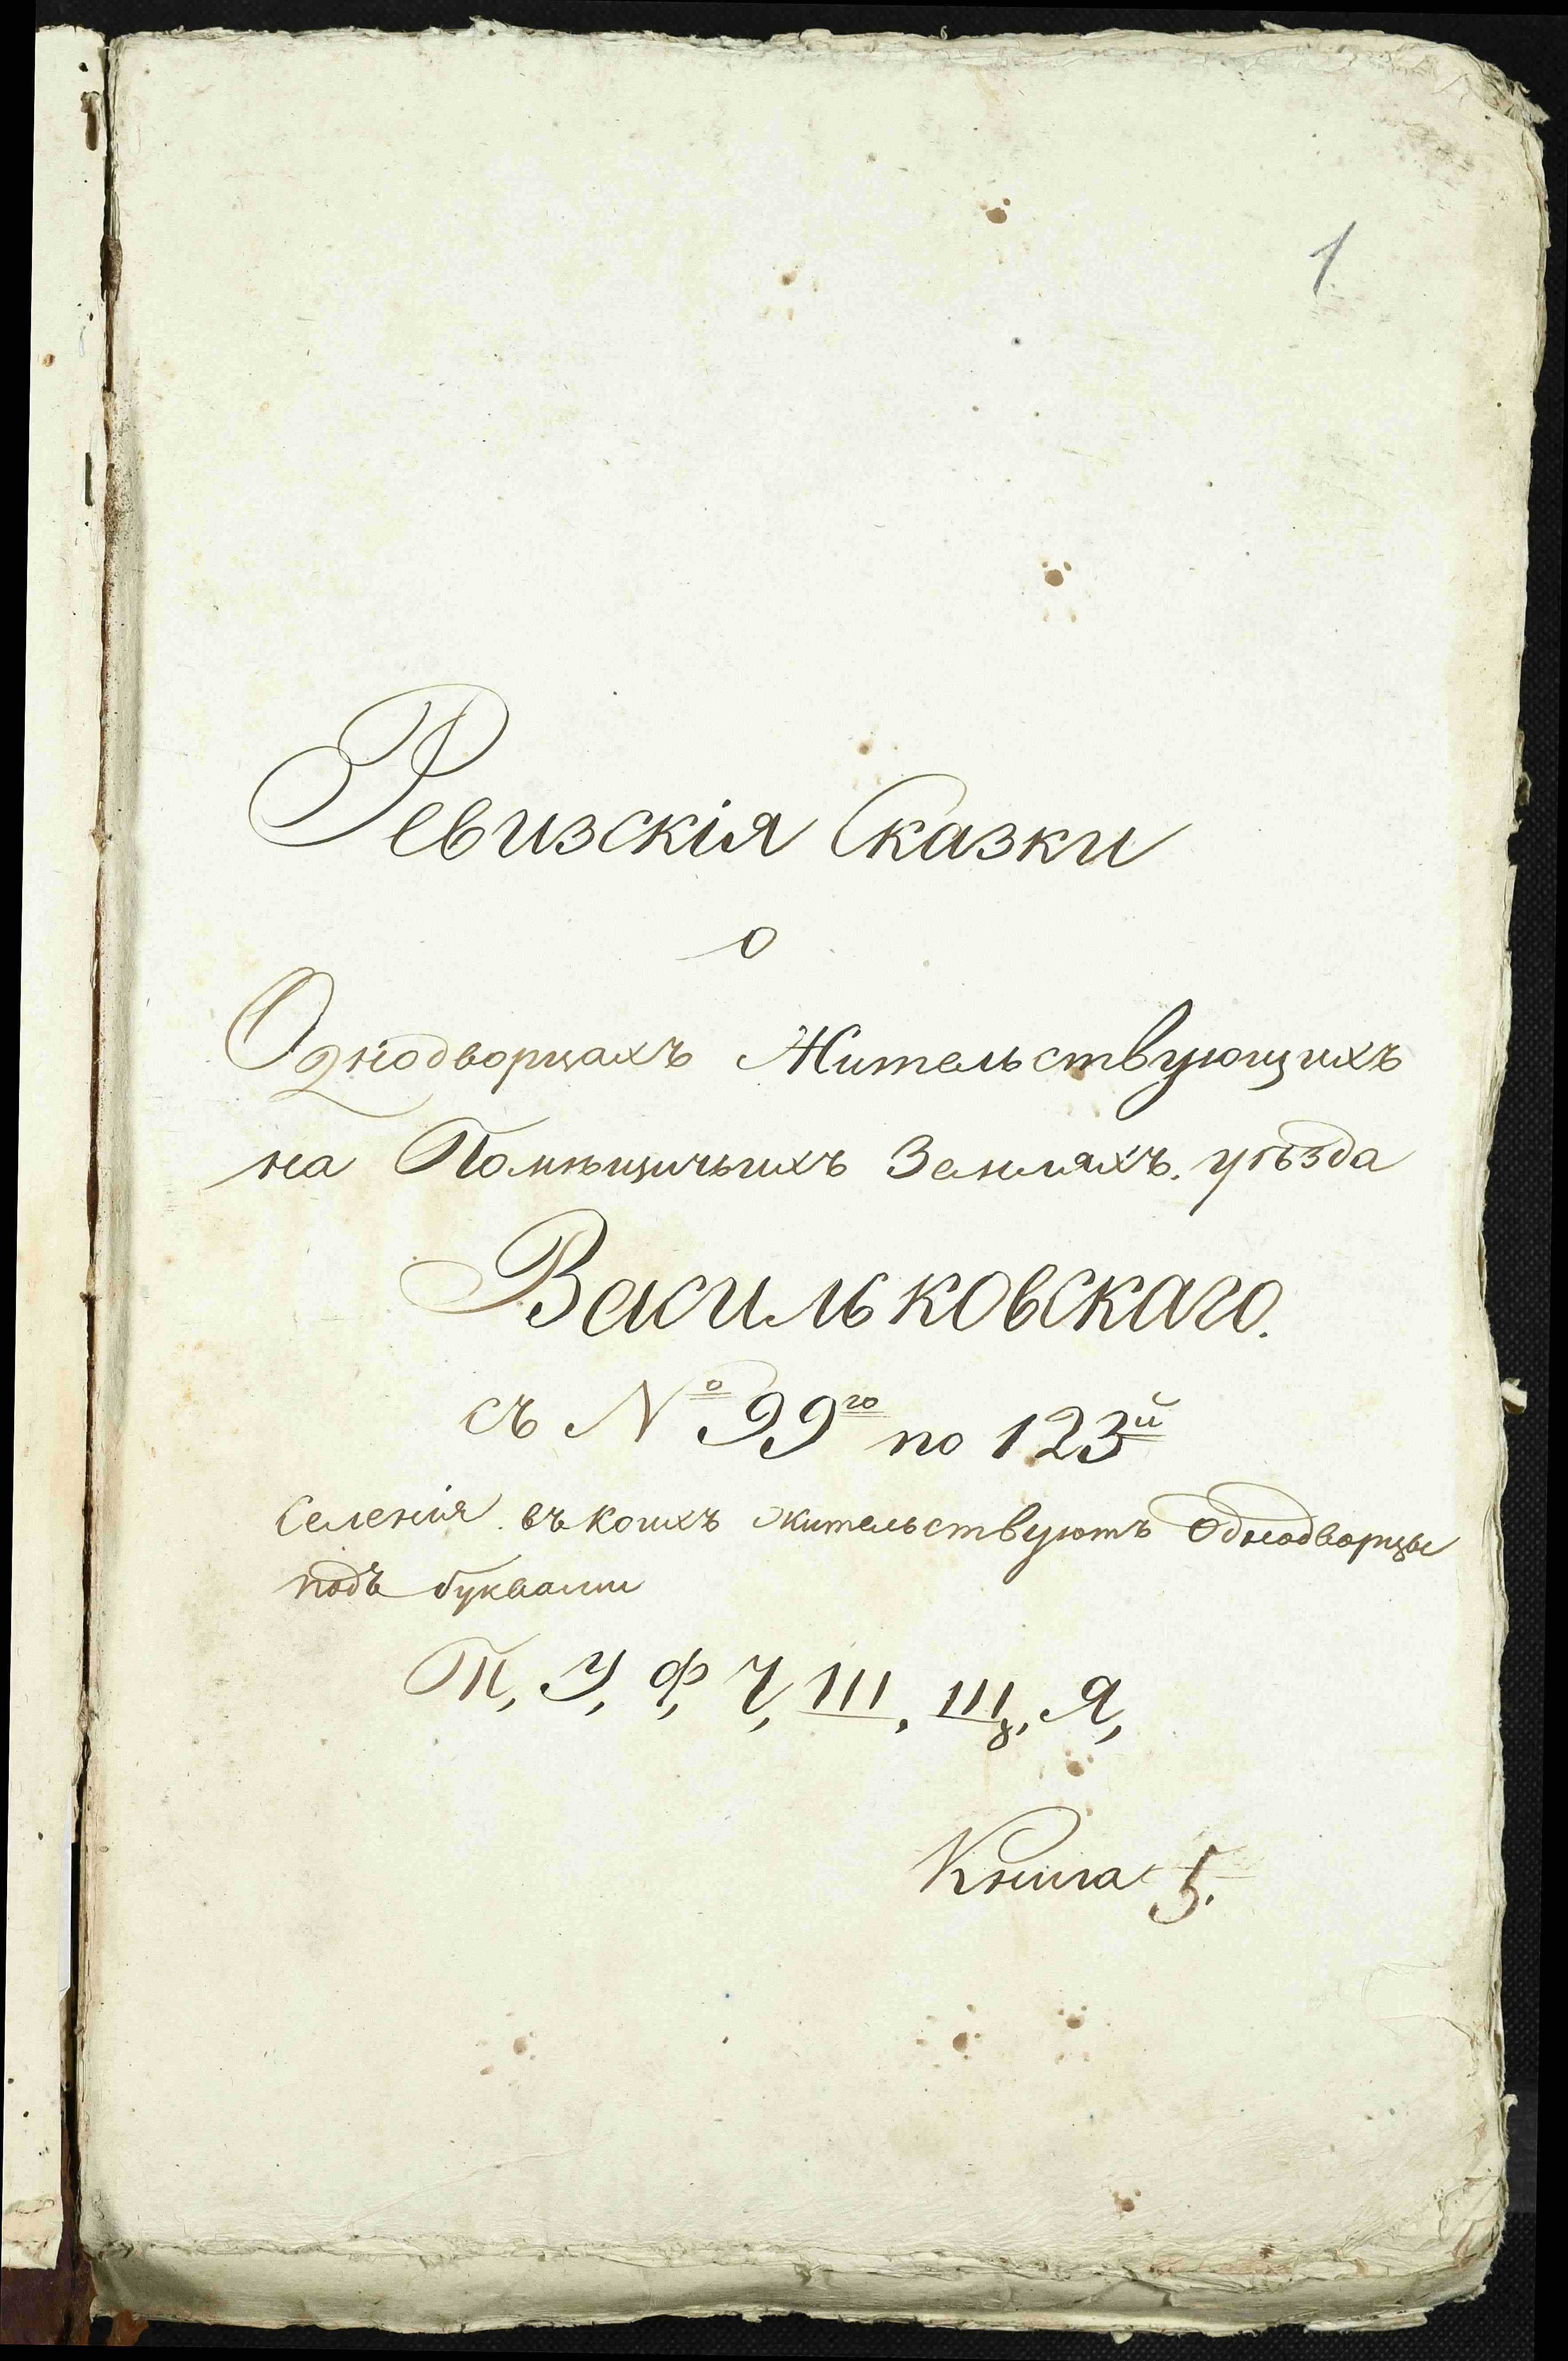 1
Ревизскія Сказки
о
Однодворцахъ Жительствующихъ
на Помѣщичьихъ Земляхъ. уѣзда
Васильковскаго.
съ № 99го по 123й
Селенія въ коихъ жительствуютъ Однодворцы
подъ буквами
Т, У, Ф, Ч, Ш, Щ, Я,
Книга 5.